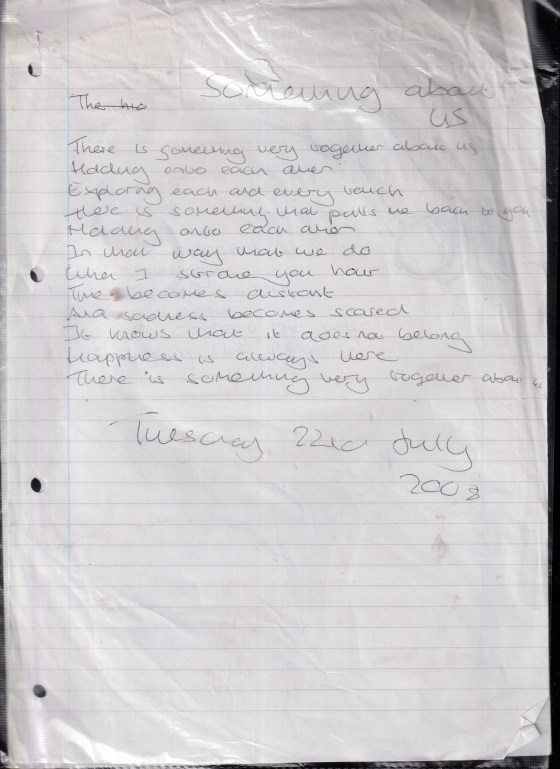 Something about
us
The
There is something very together about us
Holding onto each other
Exploring each and every touch
There is something that pulls me back to you
Holding onto each other
In that way that we do
When I stroke your hair
Time becomes distant
And sadness becomes scared
It knows that it does not belong
Happiness is always here
There is something very together about us
Tuesday 22nd July
2008